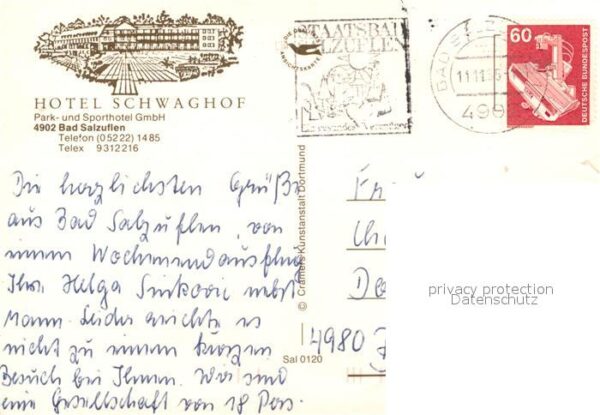 HOTEL SCHWAGHOF
Park- und Sporthotel GmbH
4902 Bad Salzuflen
Telefon (05222) 1485
Telex 9312216
STAATSBAD
SALZUFLEN
BAD
11.11.
490
60
DEUTSCHE BUNDESPOST
© Cramers Kunstanstalt Dortmund
Sal 0120
Die herzlichsten Grüße
aus Bad Salzuflen, von
einem Wochenendausflug
Ihre Helga Sinkovic nebst
Mann. Leider reichte es
nicht zu einem kurzen
Besuch bei Ihnen. Wir sind
eine Gesellschaft von 18 Pers.
4980
privacy protection
Datenschutz